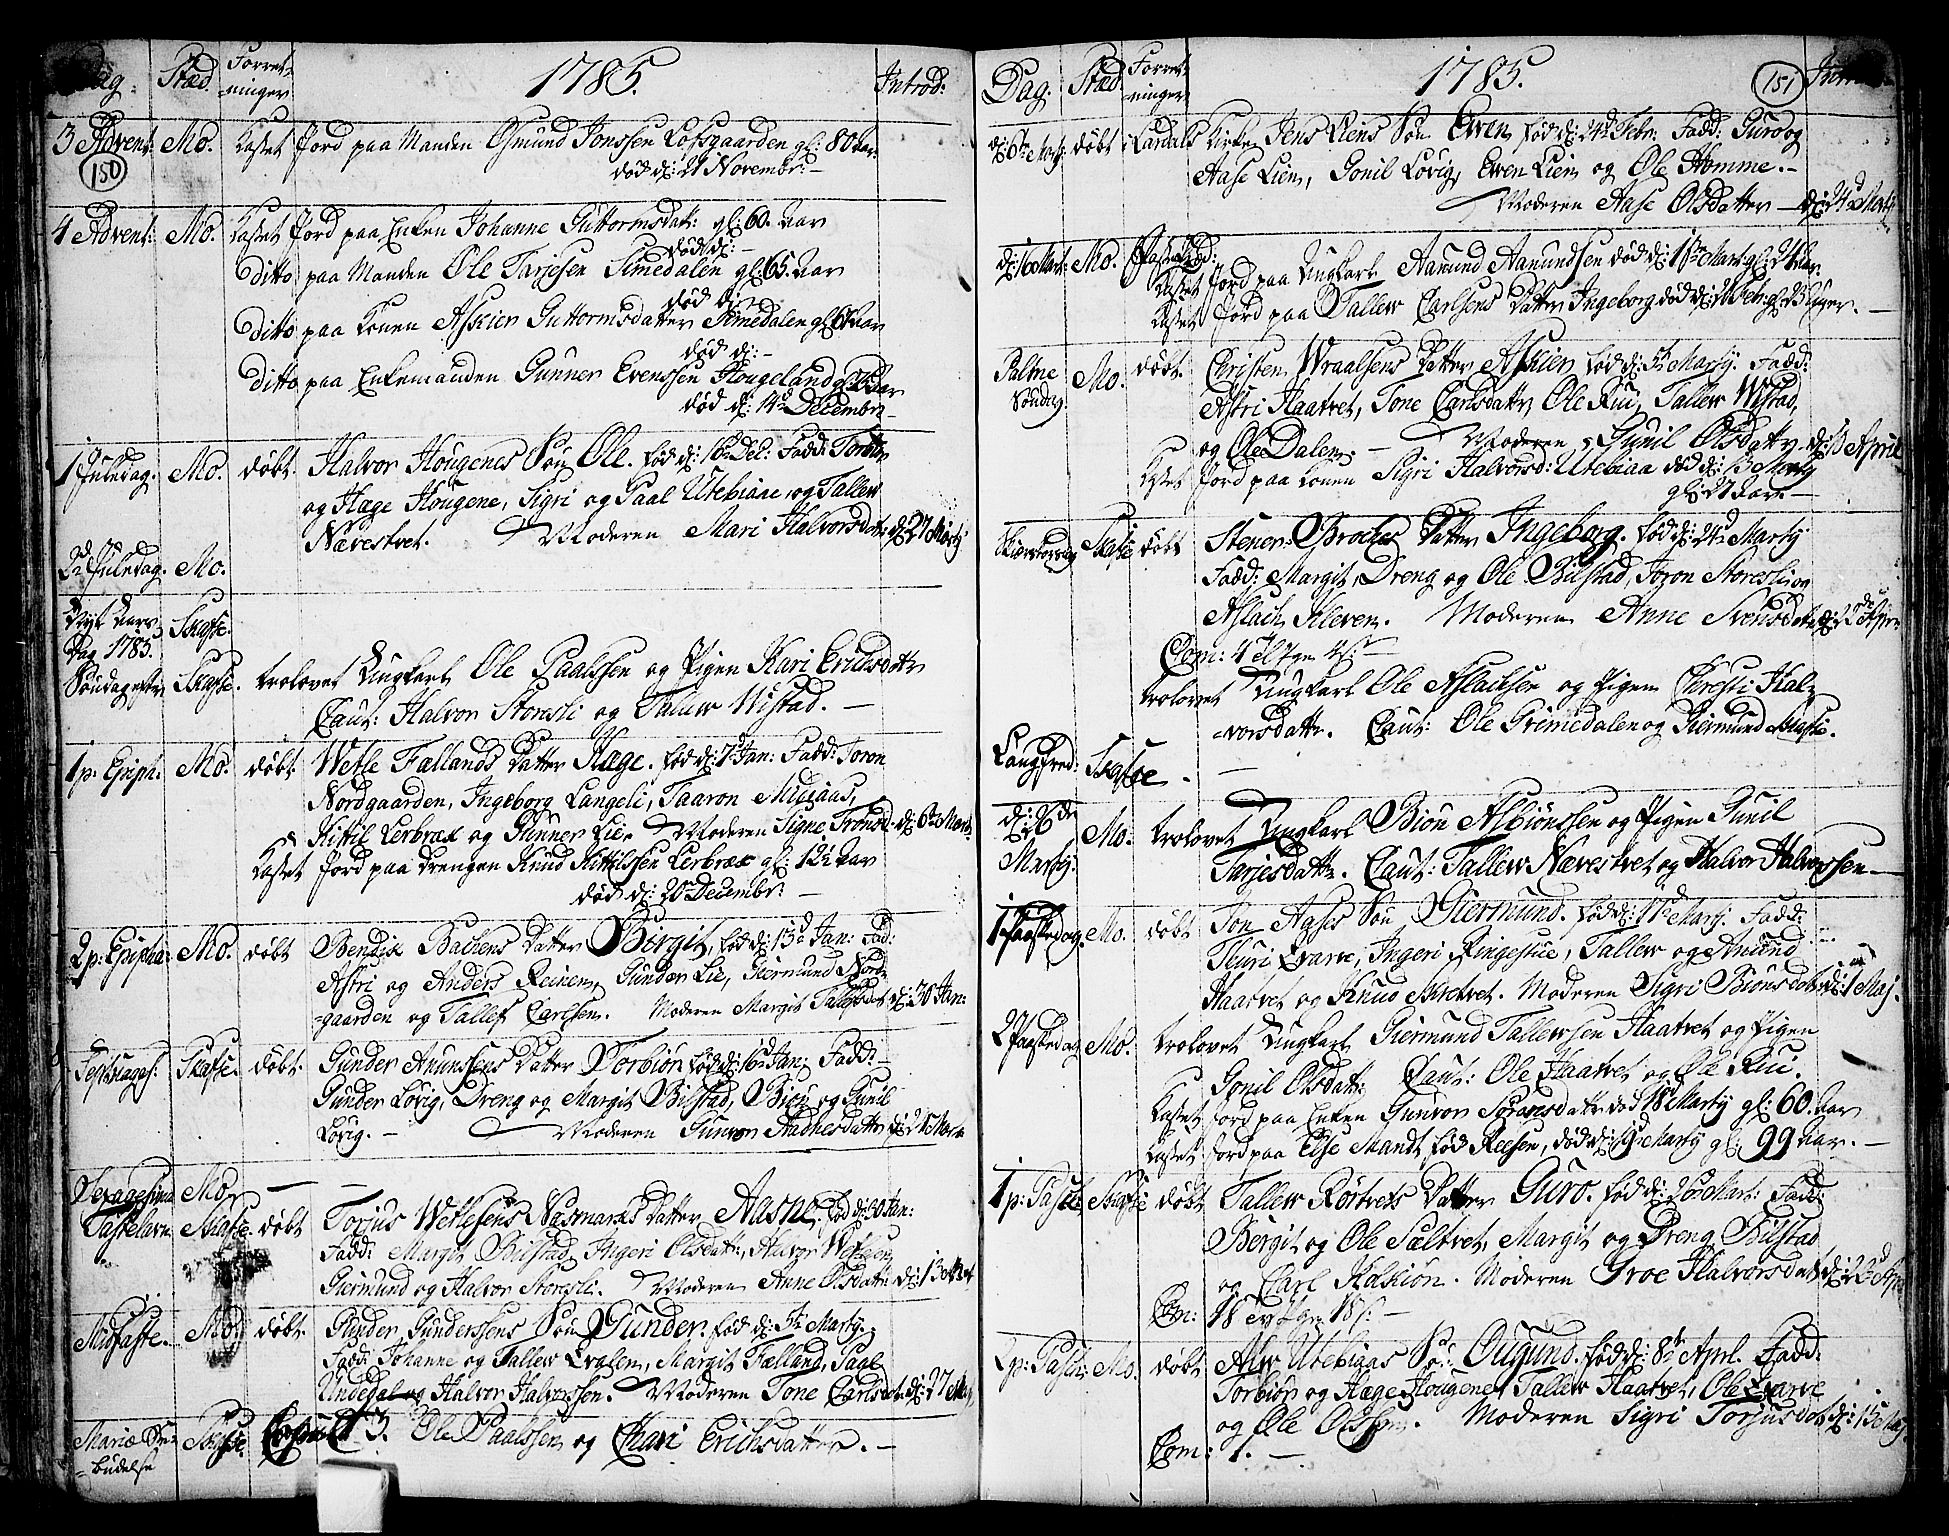 Dag. Stæd. Forret-
ninger 1785. Introd:
3 Advent: Mo. Kastet Jord paa Manden Osmund Jonssen Lofsgaarden gl: 80 Aar.
150
død d: 21 Novembr: –
4 Advent: Mo. Kastet Jord paa Enken Johanne Guttormsdatt: gl: 60. Aar
død d: –
Ditto paa Manden Ole Tarjesen Simedalen gl: 65. Aar
død d:
Ditto paa Konen Askier Guttormsdatter Simedalen gl: Aar
død d: –
Ditto paa Enkemanden Gunner Evenssen Hougeland gl: Aar
død d: 14 Decembr:
1 Juledag. Mo. døbt. Halvor Hougenes Søn Ole. fød d: 16 De: Fadd: Torbiør
og Hæge Hougene, Sigri og Paal Utebiaae og Tallew
Nævestvet. Moderen Mari Halvorsdatt: d: 27 Marty
2d Juledag. Mo.
Nyt Aars
Dag 1785. Skafse.
Søndag eft: Skafse. trolovet Ungkarl Ole Paalssen og Pigen Kari Erichsdattr
Caut: Halvor Storesli og Talew Wistad. –
1 p: Epiph: Mo. døbt. Wetle Fallands Datter Hæge. fød d: 7d Jan: Fadd: Joron
Nordgaarden, Ingeborg Langeli, Taaron Midjaas,
Kittil Lerbræk og Gunner Lie. Moderen Signe Tronsd. d: 6te Mart:
Kastet Jord paa Drengen Knud Kittilssen Lerbræk gl: 12½ Aar
død d: 20 Decembr: –
2 p: Epipha: Mo. døbt Bendix Bakkens Datter Birgit, fød d: 13d Jan: Fad:
Astri og Anders Reinen, Gunder Lie, Giermund Nord-
gaarden og Tallef Carlsen. Moderen Margit Talefsdat d: 30 Jan:
Septuages: Skafse. døbt. Gunder Anunssens Datter Torbiør fød d: 16d Jan: Fadd: –
Gunder Lovig, Dreng og Margit Bilstad, Biøn og Gunil
Lovig. – Moderen Gunvor Aadnesdatter d: 25 Mart:
Sexagesima Mo. — —
Fastelavn Skafse. døbt Torjus Wetlesens Næsmarks Datter Aasne, fød d: 30 Jan:
Fadd: Margit Bilstad, Ingeri Olsdatt:, Halvor Wetlesen,
Giermund og Halvor Storesli. Moderen Anne Olsdatter d: 13 Mart.
Midfaste. Mo. døbt. Gunder Gunderssens Søn Gunder. fød d: 5te Marty.
Fadd: Johanne og Tallew Qvalen, Margit Fælland, Paal
Undedal og Halvor Halvorssen. Moderen Tone Carlsdot. d: 27 Mart,
Mariæ Be-
budelse Skafse. Copul: T 3. Ole Paalssen og Chari Erichsdatter. –
Dag. Stæd. Forret-
ninger 1785. 151
d: 6te Marty døbt i Laurdals Kirke Jens Liens Søn Even fød d: 24d Febr: Fadd: Guro og
Aase Lien, Gonil Lovig, Even Lien og Ole Homme. –
Moderen Aase Olsdatter – d: 24d Marty
d: 16 Mart: Mo. Kastet Jord paa Ungkarl Aamund Aamundsen død d: 1ste Mart gl: 24 Aar.
Kastet Jord paa Tallew Carlsens Datter Ingeborg død d: Feb: gl: 3 Uger. –
Palme
Søndag Mo. døbt. Christen Wraalsens Datter Askier fød d: 5te Marty. Fadd:
Astri Haatvet, Tone Carlsdattr, Ole Riu, Tallew Wistad,
og Ole Dalen. – Moderen Gunil Olsdattr. d: 13 April
Kastet Jord paa Konen Sigri Halvorsd: Utebiaa død d: 13 Marty
gl: 27 Aar. –
Skiertorsdag Skafse døbt Stener Brockes Datter Ingeborg. fød d: 24d Marty
Fadd: Margit, Dreng og Ole Bilstad, Joron Storesli og
Aslach Kleven. Moderen Anne Svensdotr d: 22de April
Com: 4
trolovet Ungkarl Ole Aslacksen og Pigen Christi Hal-
vorsdattr. Caut: Ole Grimedalen og Giermund Skafse.
Langfred: Skafse. —
d: 26de
Marty: Mo. trolovet Ungkarl Biøn Asbiønssen og Pigen Gunil
Tarjesdattr. Caut: Tallew Nævestvet og Halvor Halvorssen —
1 Paaskedag. Mo. døbt Jon Aases Søn Giermund. fød d: 17d Mart: Fadd: –
Thuri Qvarve, Ingeri Ringestue, Tallew og Amund
Haatvet og Knud Skredvet. Moderen Sigri Biønsdotr d: 1 Maj.
2 Paaskedag Mo. trolovet Ungkarl Giermund Tallewsen Haatvet og Pigen
Gonil Olsdatt: Caut: Ole Haatvet og Ole Riu.
Kastet Jord paa Enken Gunvor Sovaresdattr død 18d Marty gl: 60. Aar
Kastet Jord paa Else Mandt, fød Reesen, død d: 19 Marty gl: 99 Aar. –
1 p: Pask: Skafse døbt Tallew Rørtvets Datter Guro. fød d: 26d Mart: Fadd:
Bergit og Ole Sæltvet, Margit og Dreng Bilstad
og Carl Kalskiøn. Moderen Groe Halvorsdat d: 22d Apr
Com: 18
2 p: Pasch: Mo. døbt Alw Utebiaas Sø: Ougund. fød d: 8d Aprl. Fadd:
Torbiør og Hæge Hougene, Tallew Haatvet, Ole Qvarve
og Ole Olssøn. Moderen Sigri Torjusdot d: 15 Maj.
Com: 1. –